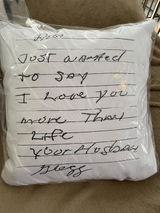 Just wanted
to say
I Love you
more Than
Life
Your Husban
Gregg